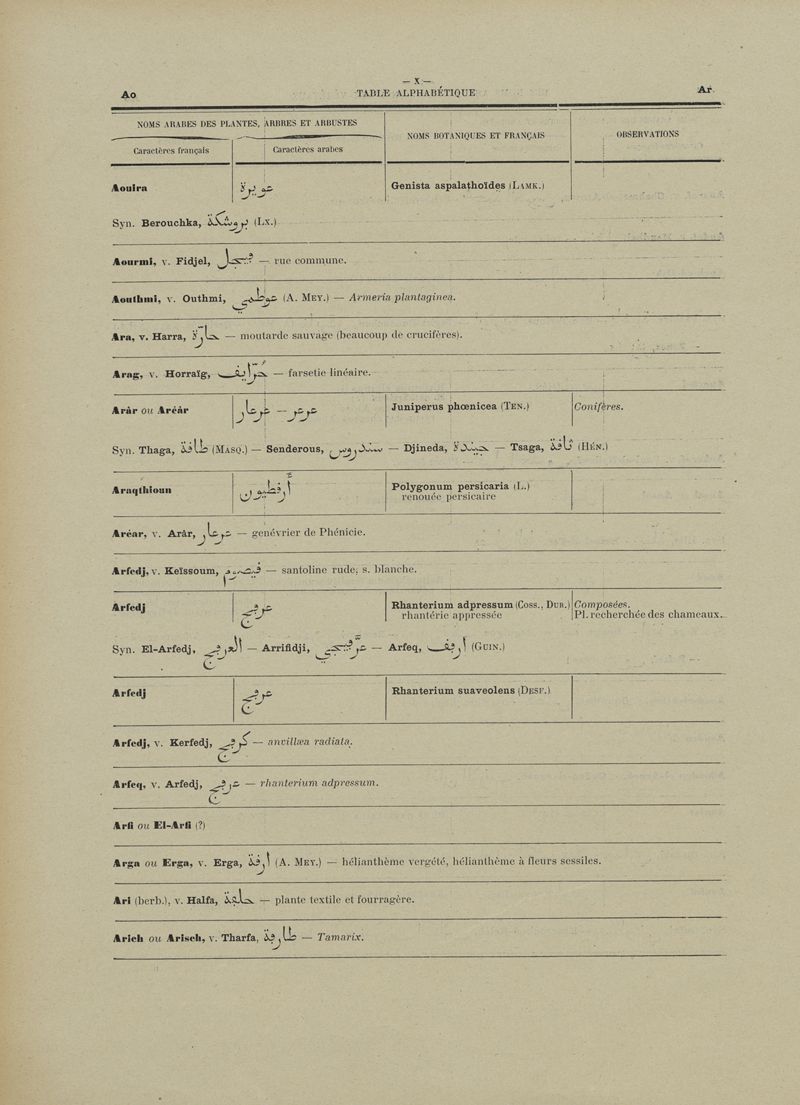 — X —
Ao TABLE ALPHABÉTIQUE Ar
NOMS ARABES DES PLANTES, ARBRES ET ARBUSTES
NOMS BOTANIQUES ET FRANÇAIS
OBSERVATIONS
Caractères français
Caractères arabes
Aouira Genista aspalathoïdes (LAMK.)
Syn. Berouchka, (LX.)
Aourmi, v. Fidjel, — rue commune.
Aouthmi, v. Outhmi, (A. MEY.) — Armeria plantaginea.
Ara, v. Harra, — moutarde sauvage (beaucoup de crucifères).
Arag, v. Horraïg, — farsetie linéaire.
Arâr ou Aréâr عرعر — عرعار Juniperus phœnicea (TEN.) Conifères.
Syn. Thaga, طاقة (MASQ.) — Senderous, سندروس — Djineda, جنيدة — Tsaga, ثاقة (HÉN.)
Araqthioun Polygonum persicaria (L.)
renouée persicaire
Aréar, v. Arâr, عرعار — genévrier de Phénicie.
Arfedj, v. Keïssoum, قيصوم — santoline rude, s. blanche.
Arfedj عرفج Rhanterium adpressum (COSS., DUR.) Composées.
rhantérie appressée Pl. recherchée des chameaux.
Syn. El-Arfedj, العرفج — Arrifidji, — Arfeq, (GUIN.)
Arfedj عرفج Rhanterium suaveolens (DESF.)
Arfedj, v. Kerfedj, كرفج — anvillæa radiata.
Arfeq, v. Arfedj, عرفج — rhanterium adpressum.
Arfi ou El-Arfi (?)
Arga ou Erga, v. Erga, أرقة (A. MEY.) — hélianthème vergété, hélianthème à fleurs sessiles.
Ari (berb.), v. Halfa, حلفة — plante textile et fourragère.
Arich ou Arisch, v. Tharfa, طارفة — Tamarix.